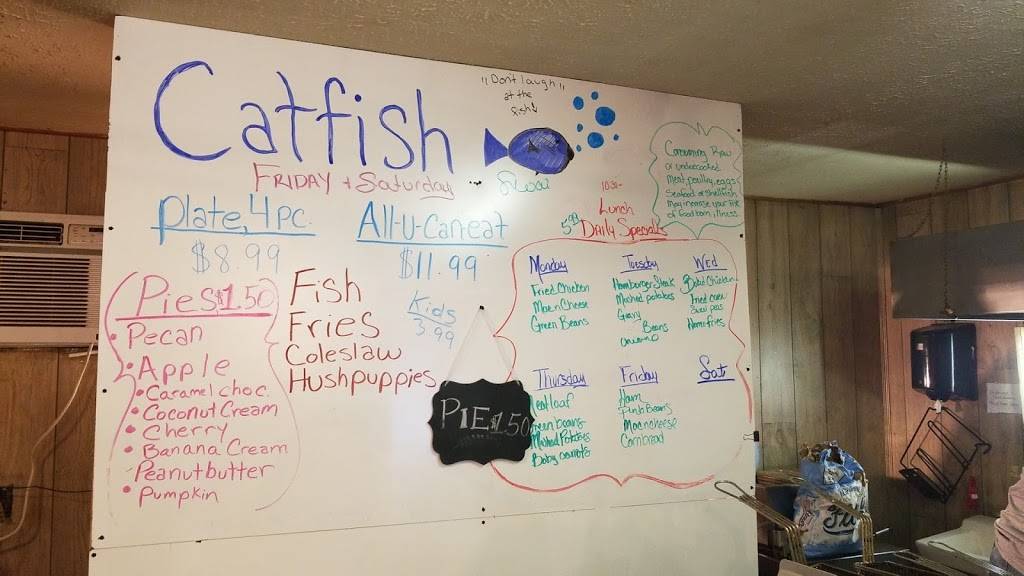 Catfish
"Don't laugh"
at the
fish!
FRIDAY + Saturday
Plate, 4 pc.
$8.99
All-U-Can eat
$11.99
Kids
3.99
Pies $1.50
Pecan
Apple
Caramel choc.
Coconut Cream
Cherry
Banana Cream
Peanutbutter
Pumpkin
Fish
Fries
Coleslaw
Hushpuppies
PIE $1.50
Consuming Raw
or undercooked
meat, poultry, eggs
Seafood or shellfish
may increase your risk
of food born, illness
10:30-
Lunch
Daily Specials
Monday
Fried Chicken
Mac n Cheese
Green Beans
Tuesday
Hamburger Steak
Mashed potatoes
Gravy
Beans
Wed
Chicken
Fried
peas
Home fries
Thursday
Meatloaf
Green beans
Mashed Potatoes
Baby carrots
Friday
Ham
Pinto Beans
Mac n cheese
Cornbread
Sat